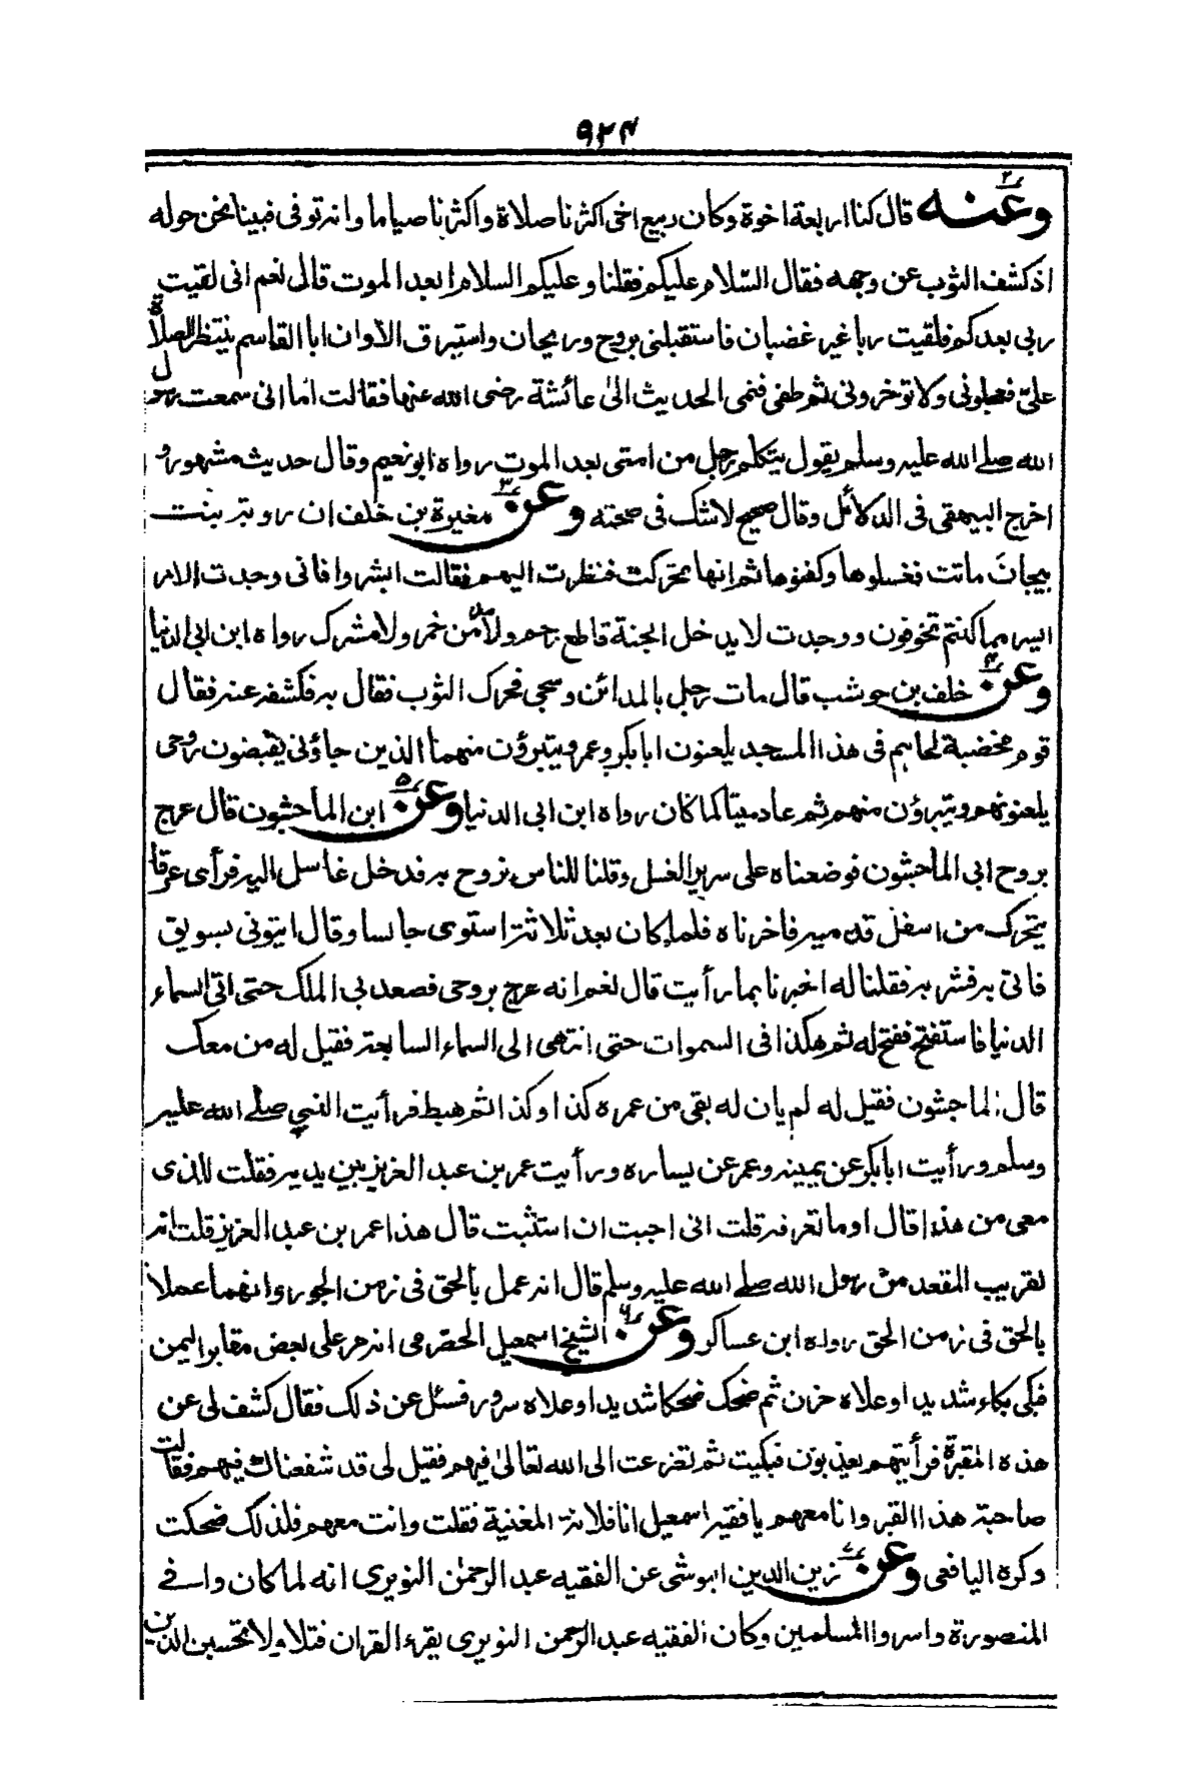 ٩٢٤
وعنه قال كنا اربعة اخوة وكان ربيع اخى اكثرنا صلاة واكثرنا صياما وانه توفى فبينا نحن حوله
اذ كشف الثوب عن وجهه فقال السّلام عليكم فقلنا وعليكم السلام ابعد الموت قال نعم انى لقيت
ربى بعدكم فلقيت ربا غير غضبان فاستقبلنى بروح وريحان واستبرق الا وان ابا القاسم ينتظر الصلاة
علىّ فعجلونى ولا توخرونى ثم طفى فنمى الحديث الىٰ عائشة رضى الله عنها فقالت اما انى سمعت رسول
الله صلے الله عليه وسلم يقول يتكلم رجل من امتى بعد الموت رواه ابو نعيم وقال حديث مشهور و
اخرج البيهقى فى الدلائل وقال صحيح لا شك فى صحته وعن مغيرة بن خلف ان روبة بنت
بيجان ماتت فغسلوها وكفنوها ثم انها تحركت فنظرت اليهم فقالت ابشروا فانى وجدت الامر
ايسر مما كنتم تخوفون ووجدت لا يدخل الجنة قاطع رحم ولا مدمن خمر ولا مشرك رواه ابن ابى الدنيا
وعن خلف بن حوشب قال مات رجل بالمدائن وسجى فحرك الثوب فقال به فكشفه عنه فقال
قوم مخضبة لحاهم فى هذا المسجد يلعنون ابا بكر وعمر ويتبرؤن منهما الذين جاؤنى يقبضون روحى
يلعنونهم ويتبرؤن منهم ثم عاد ميتا كما كان رواه ابن ابى الدنيا وعن ابن الماجشون قال عرج
بروح ابى الماجشون فوضعناه على سرير الغسل وقلنا للناس نروح به فدخل غاسل اليه فرأى عرقا
يتحرك من اسفل قدميه فاخرناه فلما كان بعد ثلاثة استوى جالسا وقال ايتونى بسويق
فاتى به فشربه فقلنا له اخبرنا بما رأيت قال نعم انه عرج بروحى فصعد بى الملك حتى اتى السماء
الدنيا فاستفتح ففتح له ثم هكذا فى السموات حتى انتهى الى السماء السابعة فقيل له من معك
قال الماجشون فقيل له لم يان له بقى من عمره كذا وكذا ثم هبط فرأيت النبى صلے الله عليه
وسلم ورأيت ابا بكر عن يمينه وعمر عن يساره ورأيت عمر بن عبد العزيز بين يديه فقلت للذى
معى من هذا قال اوما تعرفه قلت انى احببت ان استثبت قال هذا عمر بن عبد العزيز قلت انه
لقريب المقعد من رسول الله صلے الله عليه وسلم قال انه عمل بالحق فى زمن الجور وانهما عملا
بالحق فى زمن الحق رواه ابن عساكر وعن الشيخ اسمعيل الحضرمى انه مر على بعض مقابر اليمن
فبكى بكاء شديدا وعلاه حزن ثم ضحك ضحكا شديدا وعلاه سرور فسئل عن ذلك فقال كشف لى عن
هذه المقبرة فرأيتهم يعذبون فبكيت ثم تضرعت الى الله تعالىٰ فيهم فقيل لى قد شفعناك فيهم فقالت
صاحبة هذا القبر وانا معهم يا فقيه اسمعيل انا فلانة المغنية فقلت وانت معهم فلذلك ضحكت
ذكره اليافعى وعن زين الدين البوشى عن الفقيه عبد الرحمٰن النويرى انه لما كان واسفے
المنصورة واسروا المسلمين وكان الفقيه عبد الرحمن النويرى يقرء القران فتلا ولا تحسبن الذين